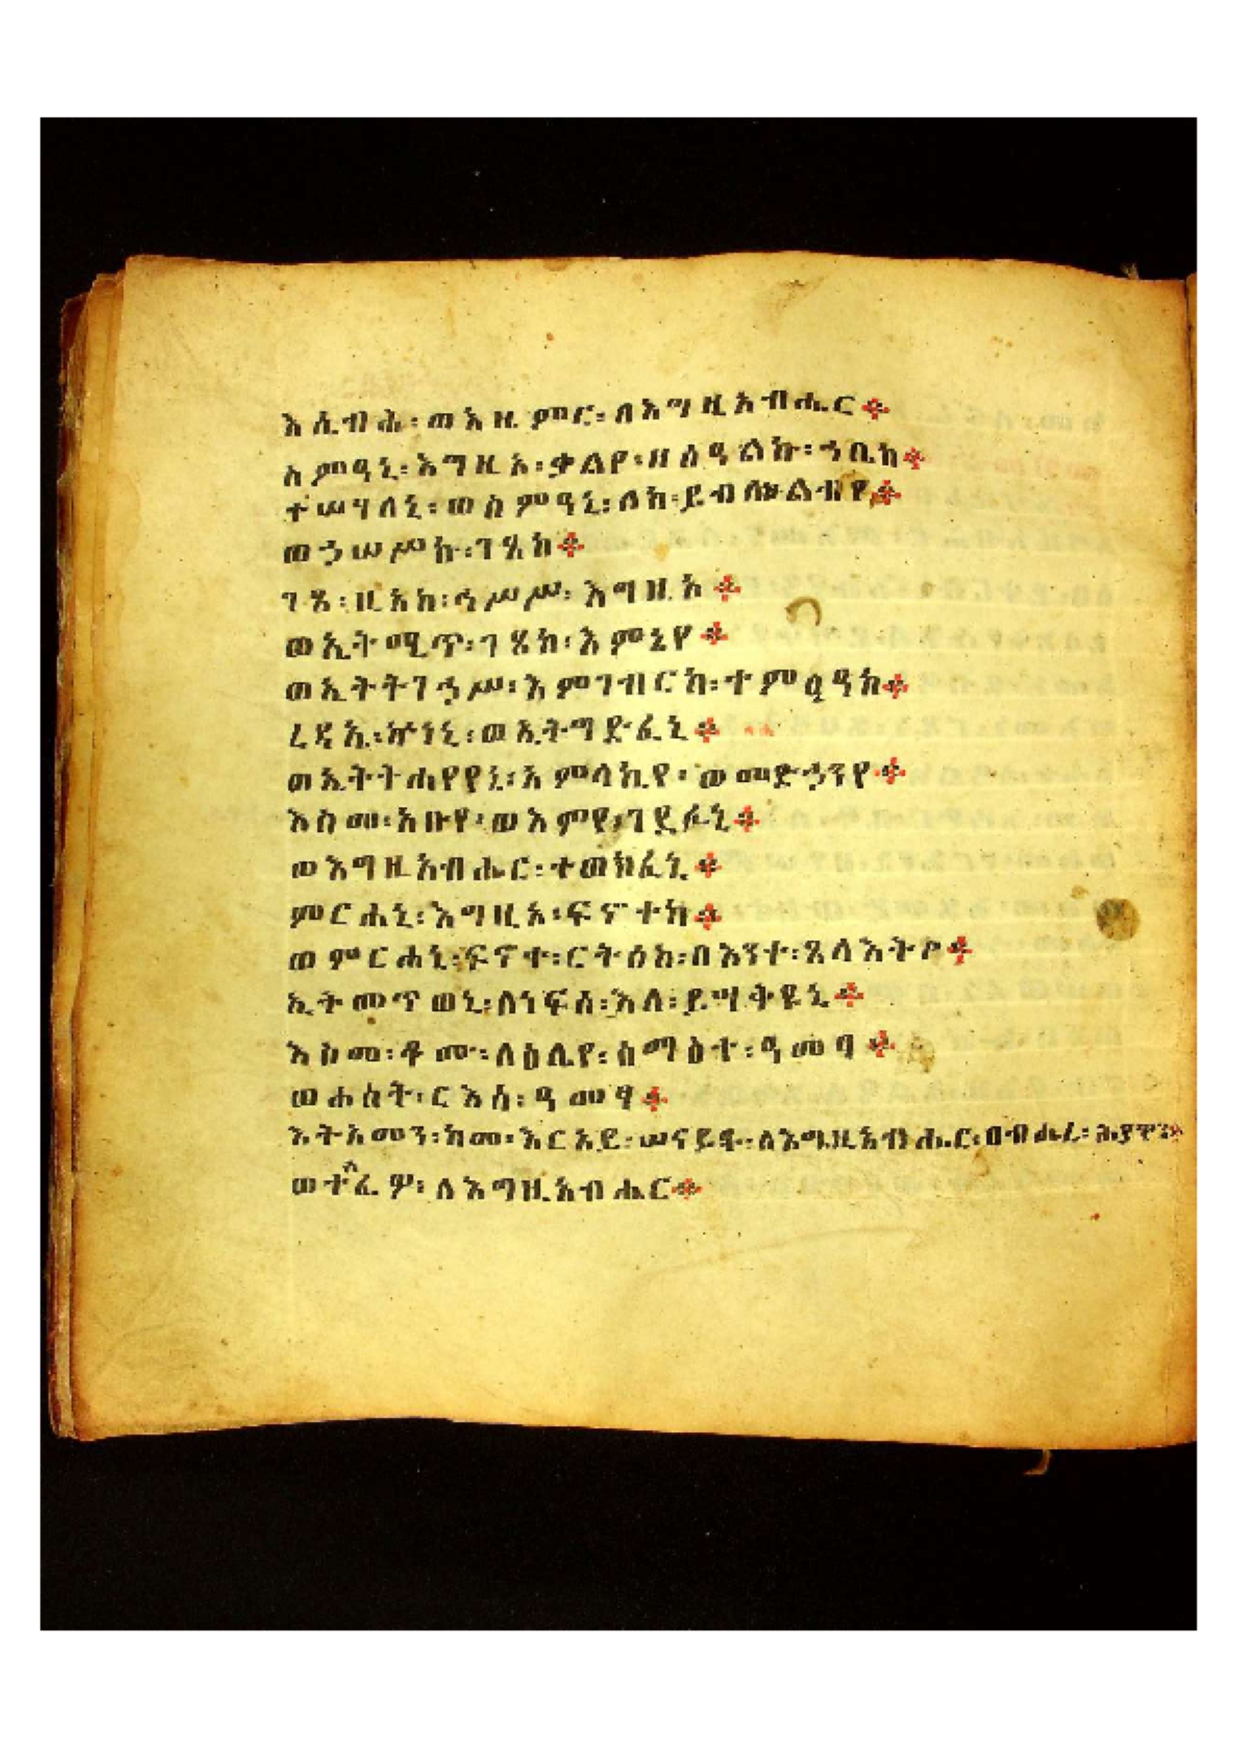 እሴብሕ፡ወእዜምር፡ለእግዚአብሔር።
ስምዓኒ፡እግዚኦ፡ቃልየ፡ዘሰዓልኩ፡ኀቤከ።
ተሠሃለኒ፡ወስምዓኒ፡ለከ፡ይብለከ፡ልብየ።
ወኃሠሥኩ፡ገጸከ።
ገጸ፡ዚአከ፡ኀሥሥ፡እግዚኦ።
ወኢትሚጥ፡ገጸከ፡እምኔየ።
ወኢትትገኃሥ፡እምገብርከ፡ተምዒዓከ።
ረዳኢ፡ኵነኒ፡ወኢትግድፈኒ።
ወኢትትሐየየኒ፡አምላኪየ፡ወመድኃንየ።
እስመ፡አቡየ፡ወእምየ፡ገደፉኒ።
ወእግዚአብሔር፡ተወክፈኒ።
ምርሐኒ፡እግዚኦ፡ፍኖተከ።
ወምርሐኒ፡ፍኖተ፡ርትዕከ፡በእንተ፡ጸላእትየ።
ኢትመጥወኒ፡ለነፍሰ፡እለ፡ይሣቅዩኒ።
እስመ፡ቆሙ፡ላዕሌየ፡ሰማዕተ፡ዓመፃ።
ወሐሰት፡ርእሰ፡ዓመፃ።
እትአመን፡ከመ፡እርአይ፡ሠናይቶ፡ለእግዚአብሔር፡በብሔረ፡ሕያዋን።
ወተሰፈዎ፡ለእግዚአብሔር።